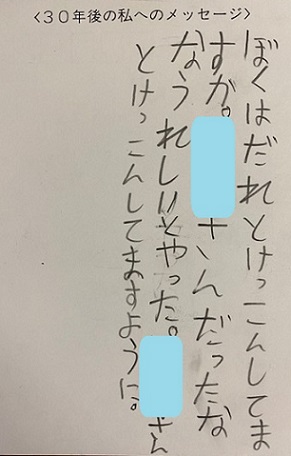 <30年後の私へのメッセージ>
ぼくはだれとけっこんしてま
すか。さんだったな
なうれしいとやった。さん
とけっこんしてますように。